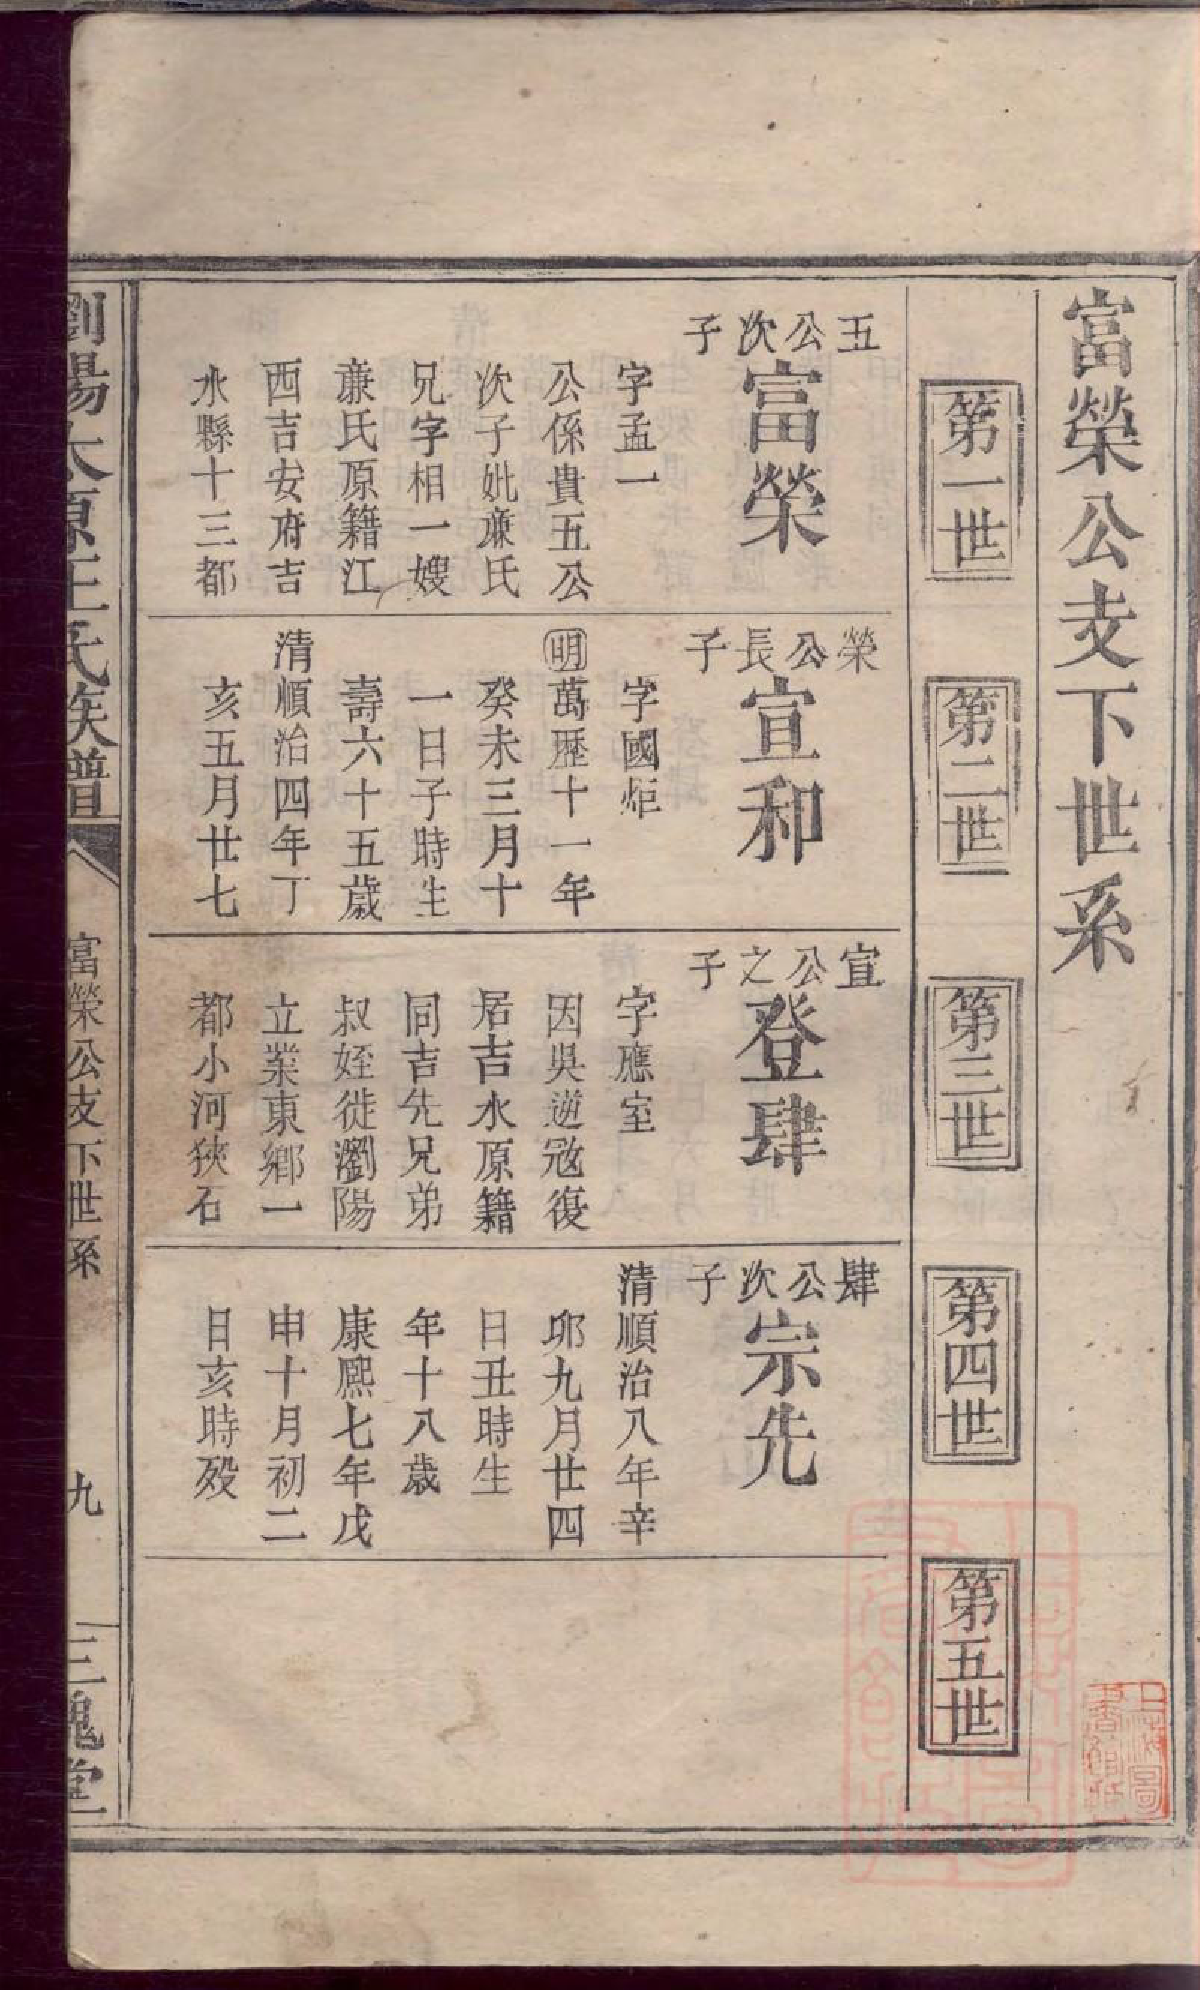 富榮公支下世系
第一世
第二世
第三世
第四世
第五世
五公次子
富榮
字孟一
公係貴五公
次子妣亷氏
兄字相一嫂
亷氏原籍江
西吉安府吉
水縣十三都
榮公長子
宣和
字國炬
明萬歷十一年
癸未三月十
一日子時生
壽六十五歲
清順治四年丁
亥五月廿七
宣公之子
登肆
字應室
因吳逆宼復
居吉水原籍
同吉先兄弟
叔姪徙瀏陽
立業東鄉一
都小河狹石
肆公次子
宗先
清順治八年辛
卯九月廿四
日丑時生
年十八歲
康熙七年戊
申十月初二
日亥時殁
瀏陽太原王氏族譜
富榮公支下世系
九
三槐堂
上海圖
書館藏